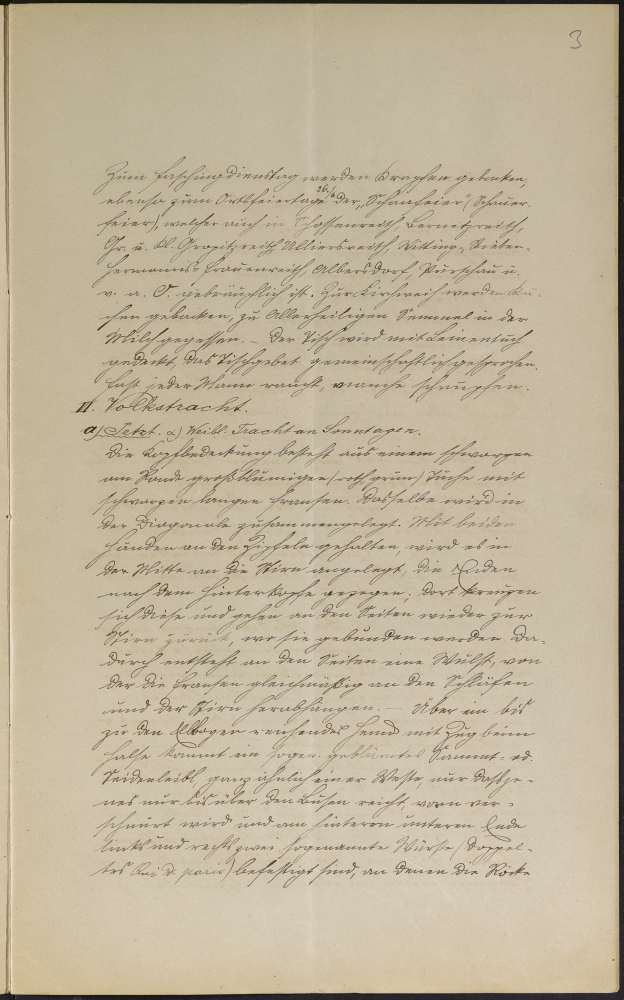 3
Zum Faschingdienstag werden Krapfen gebacken,
ebenso zum Ortsfeiertage 26./6. der „Schaurfeier" (Schauer-
feier), welcher auch in Schossenreith, Bernetzreith,
Gr. u. Kl. Gropitzreith Ulliersreith,
Frauenreith, Albersdorf, Pürschau u.
v. a. O. gebräuchlich ist. Zur Kirchweih werden Ku-
chen gebacken, zu Allerheiligen Semmel in der
Milch gegessen. – Der Tisch wird mit Leinentuch
gedeckt, das Tischgebet gemeinschaftlich gesprochen.
Fast jeder Mann raucht, manche schnupfen.
II. Volkstracht.
a) Jetzt. α) Weibl. Tracht an Sonntagen.
Die Kopfbedeckung besteht aus einem schwarzen
am Rande großblumigen (roth grün) Tuche mit
schwarzen langen Fransen. Dasselbe wird in
der Diagonale zusammengelegt. Mit beiden
Händen an den Zipfeln gehalten, wird es in
der Mitte an die Stirn angelegt, die Enden
nach dem Hinterkopfe gezogen; dort kreuzen
sich diese und gehen an den Seiten wieder zur
Stirn zurück, wo sie gebunden werden. Da-
durch entsteht an den Seiten eine Wulst, von
der die Fransen gleichmäßig an den Schläfen
und der Stirn herabhängen. – Über im bis
zu den Elbogen reichendes Hemd mit Zug beim
Halse kommt ein sogen. geblümtes Sammt- od.
Seidenleibl, ganz ähnlich einer Weste, nur daß je-
nes nur bis über den Busen reicht, vorn ver-
schnürt wird und am hinteren unteren Ende
links und rechts zwei sogenannte Würste (Doppel-
tes Cui d. paris) befestigt sind, an denen die Röcke